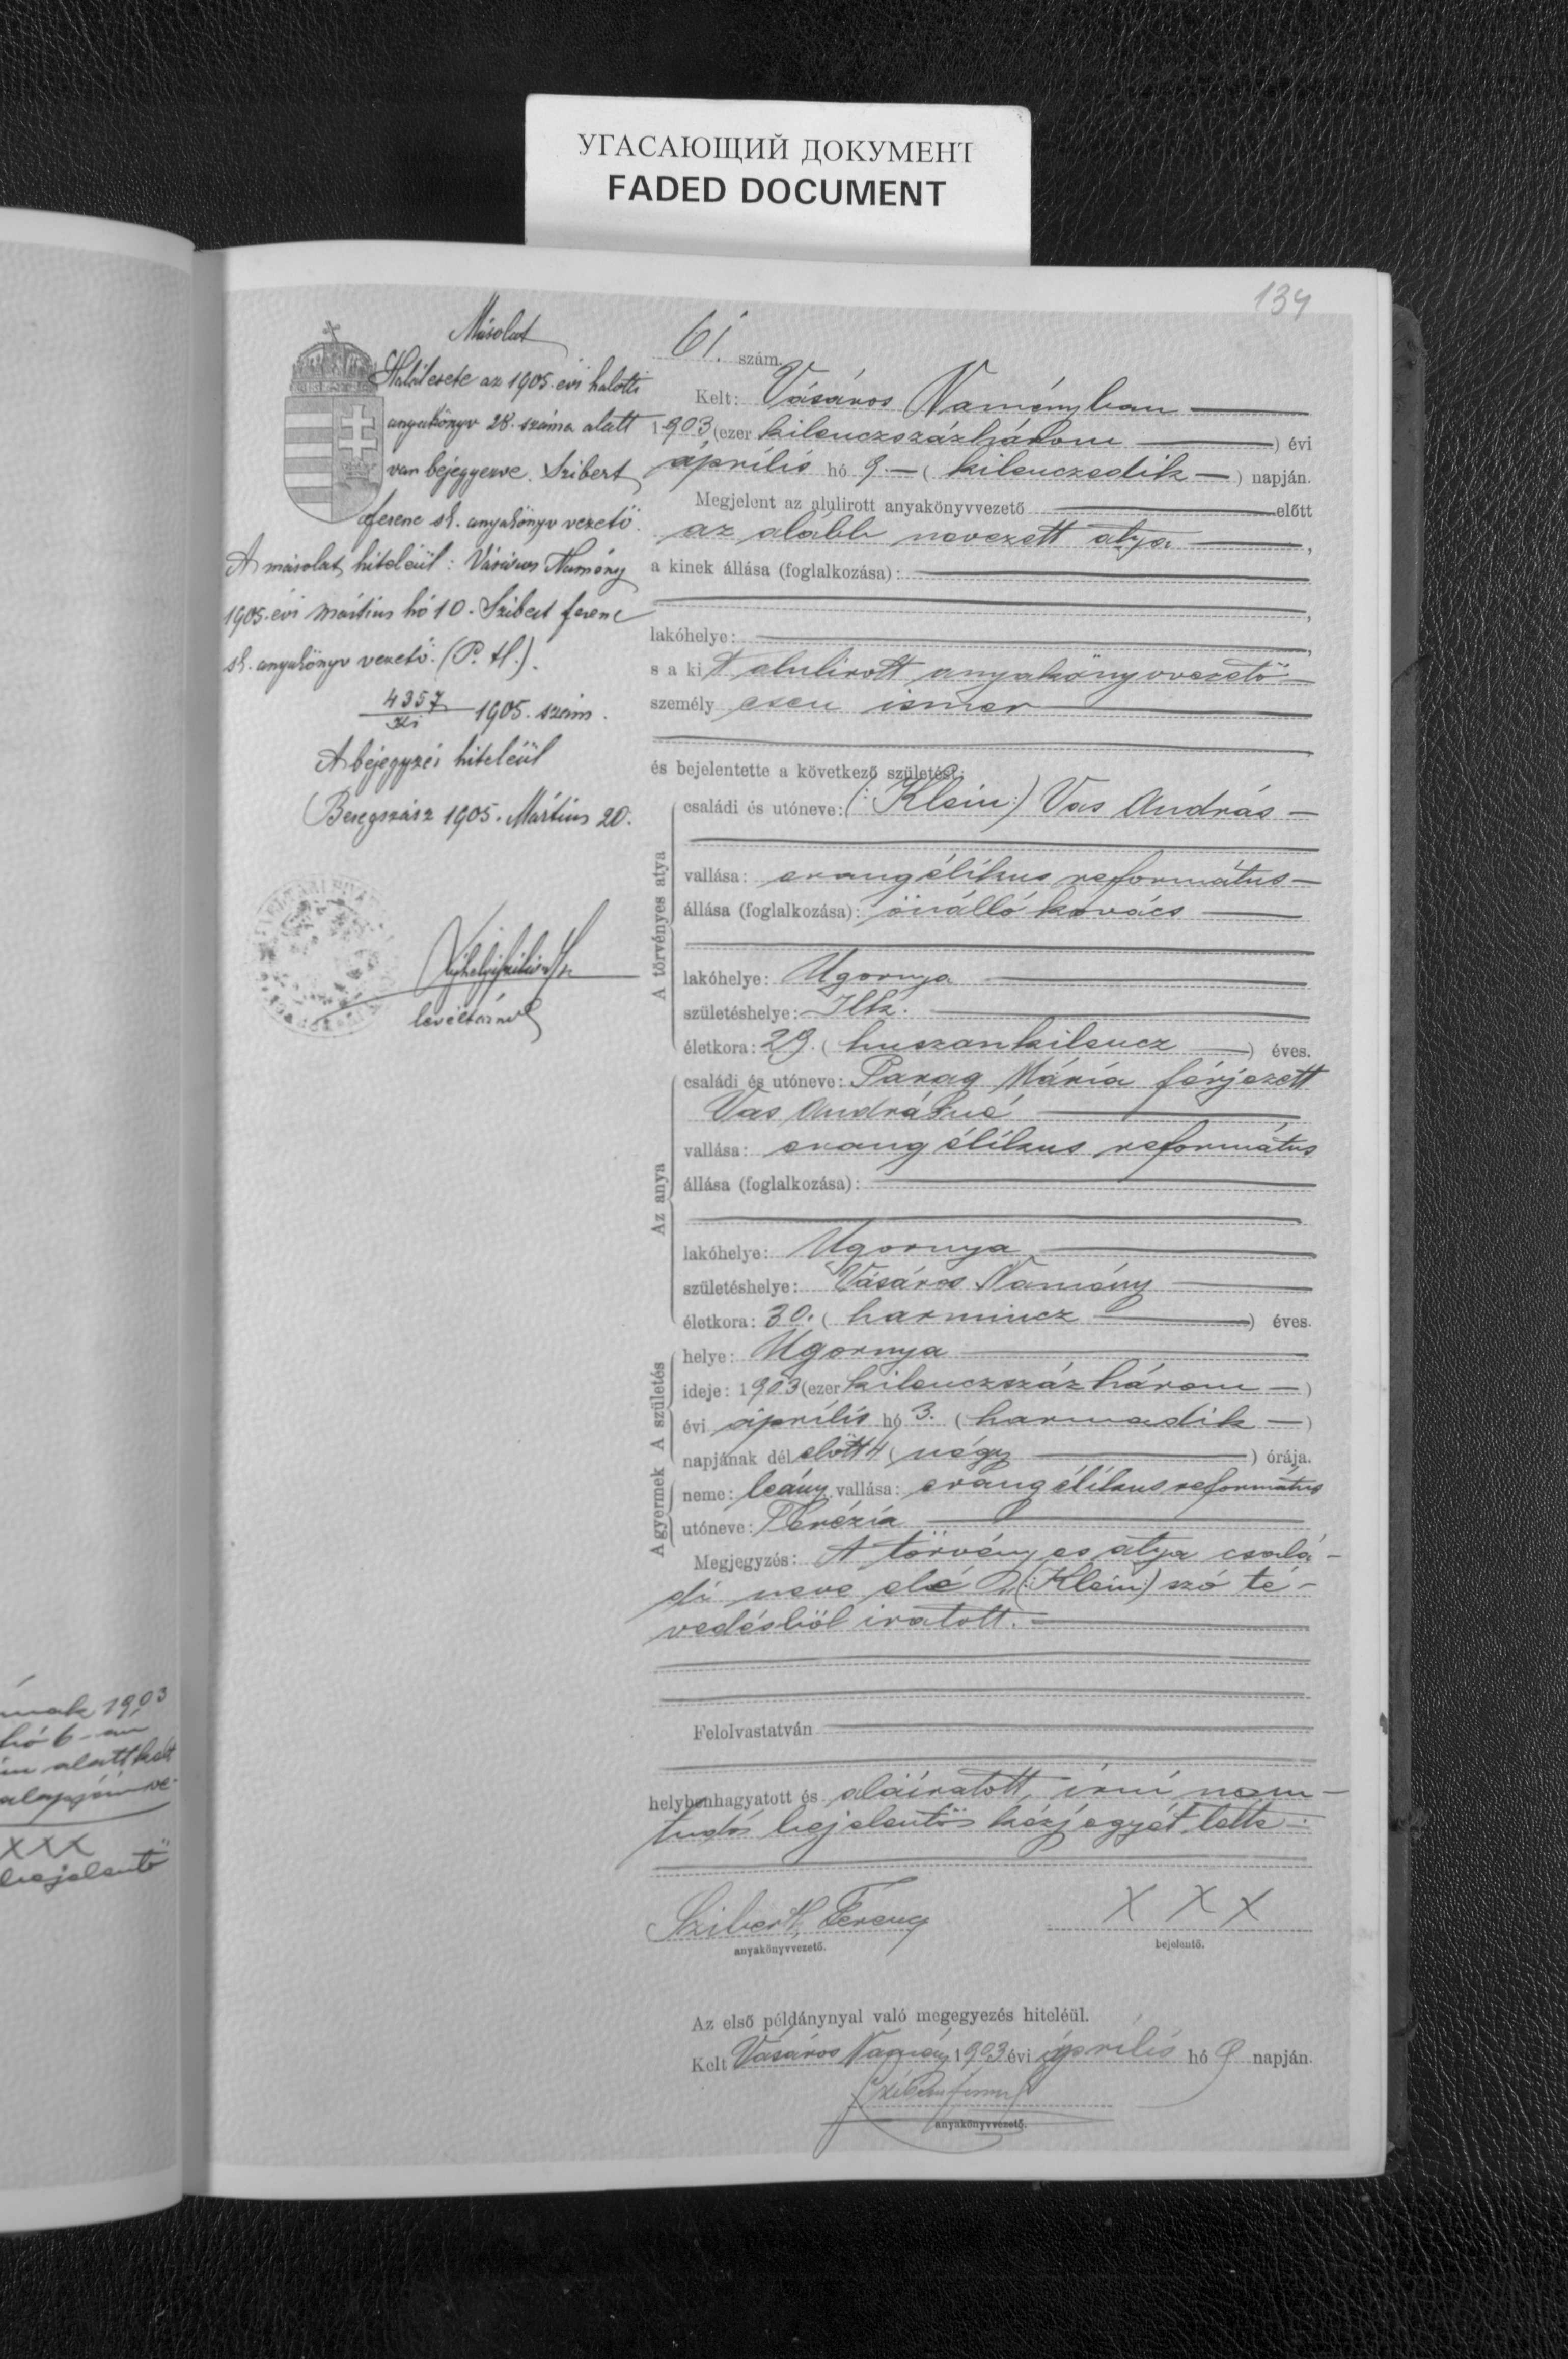 УГАСАЮЩИЙ ДОКУМЕНТ
FADED DOCUMENT
134
Másolat
Halálesete az 1905. évi halotti
anyakönyv 28. száma alatt
van bejegyezve. Szibert
ferenc sk. anyakönyv vezető.
A másolat hiteléül: Vásáros Namény
1905. évi Mártius hó 10. Szibert ferenc
sk. anyakönyv vezető. (P. H.).
4357
1905. szám.
A bejegyzés hiteléül
Beregszász 1905. Mártius 20.
levéltárnok
61. szám.
Kelt: Vásáros Naményban
1903 (ezer kilenczszázhárom ) évi
április hó 9. ( kilenczedik ) napján.
Megjelent az alulirott anyakönyvvezető előtt
az alább nevezett atya ,
a kinek állása (foglalkozása):
lakóhelye: ,
s a kit alulirott anyakönyvvezető
személy esen ismer
és bejelentette a következő születést:
A törvényes atya
családi és utóneve: (: Klein :) Vas András
vallása: evangélikus református
állása (foglalkozása): önálló kovács
lakóhelye: Ugornya
születéshelye: Ilk.
életkora: 29. ( huszonkilencz ) éves.
Az anya
családi és utóneve: Parag Mária férjezett
Vas Andrásné
vallása: evangélikus református
állása (foglalkozása):
lakóhelye: Ugornya
születéshelye: Vásáros Namény
életkora: 30. ( harmincz ) éves.
A születés
helye: Ugornya
ideje: 1903 (ezer kilenczszázhárom )
évi április hó 3. ( harmadik )
napjának dél előtt 4 ( négy ) órája.
A gyermek
neme: leány vallása: evangélikus református
utóneve: Terézia
Megjegyzés: A törvényes atya csalá-
di neve elé a (: Klein :) szó té-
vedésből iratott.
Felolvastatván
helybenhagyatott és aláiratott, irni nem
tudó bejelentő kézjegyét tette
Szibert Ferencz
anyakönyvvezető.
X X X
bejelentő.
Az első példánynyal való megegyezés hiteléül.
Kelt Vásáros Namény 1903 évi április hó 9 napján.
anyakönyvvezető.
1903
hó 6-án
alatt kelt
XXX
bejelentő